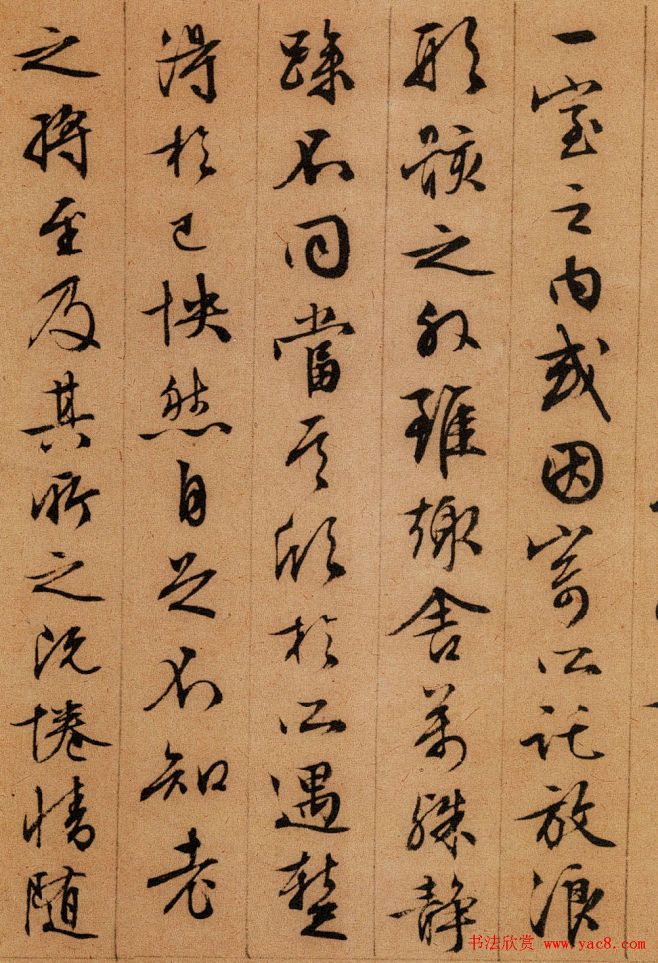 一室之内或因寄所託放浪
形骸之外雖趣舍萬殊靜
躁不同當其欣於所遇蹔
得於己怏然自足不知老
之將至及其所之既惓情隨
书法欣赏 www.yac8.com